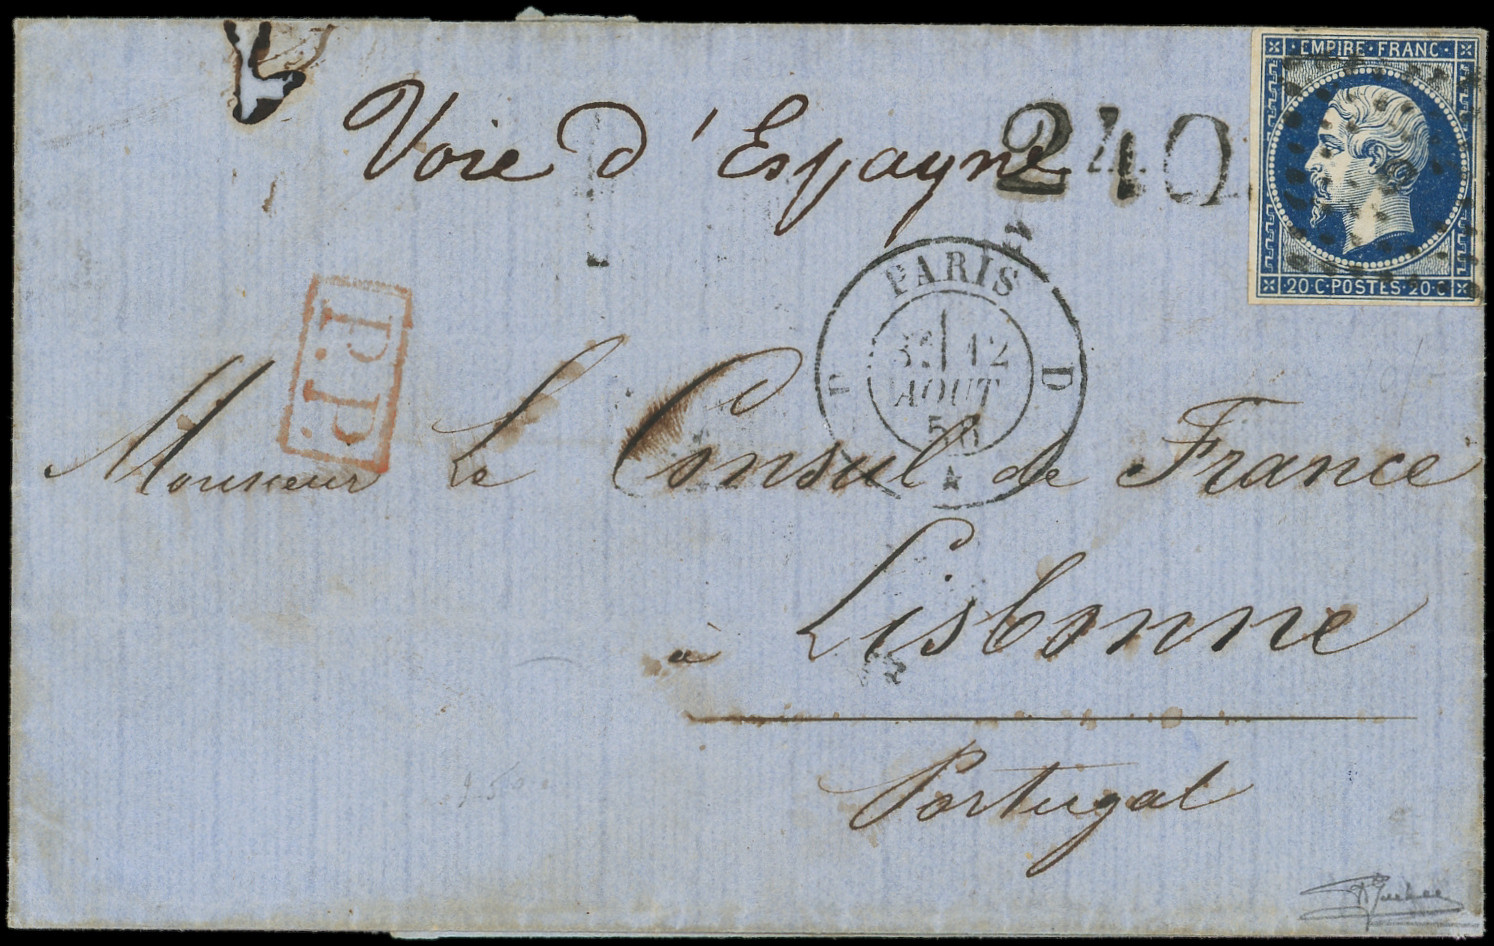 EMPIRE · FRANC ·
Voie d'Espagne
240
20 · C · POSTES · 20 · C
PARIS
D
12
AOUT
P.P.
Monsieur Le Consul de France
à Lisbonne
Portugal